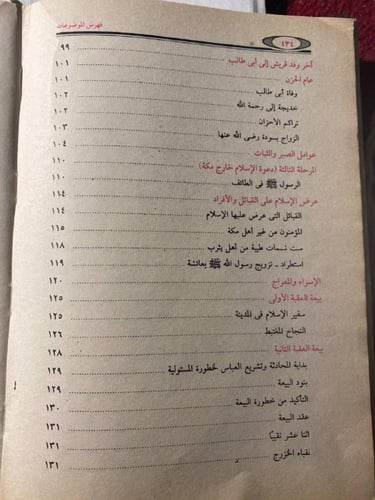 ٤٣٤ فهرس الموضوعات
آخر وفد قريش إلى أبى طالب ٩٩
عام الحزن ١٠١
وفاة أبى طالب ١٠١
خديجة إلى رحمة الله ١٠٢
تراكم الأحزان ١٠٢
الزواج بسودة رضى الله عنها ١٠٣
عوامل الصبر والثبات ١٠٤
المرحلة الثالثة (دعوة الإسلام خارج مكة) ١١٠
الرسول ﷺ فى الطائف ١١٠
عرض الإسلام على القبائل والأفراد ١١٤
القبائل التى عرض عليها الإسلام ١١٤
المؤمنون من غير أهل مكة ١١٦
ست نسمات طيبة من أهل يثرب ١١٨
استطراد ـ تزويج رسول الله ﷺ بعائشة ١١٩
الإسراء والمعراج ١٢٠
بيعة العقبة الأولى ١٢٥
سفير الإسلام فى المدينة ١٢٥
النجاح المغتبط ١٢٦
بيعة العقبة الثانية ١٢٨
بداية المحادثة وتشريع العباس لخطورة المسئولية ١٢٩
بنود البيعة ١٢٩
التأكيد من خطورة البيعة ١٣٠
عقد البيعة ١٣١
اثنا عشر نقيبًا ١٣١
نقباء الخزرج ١٣١